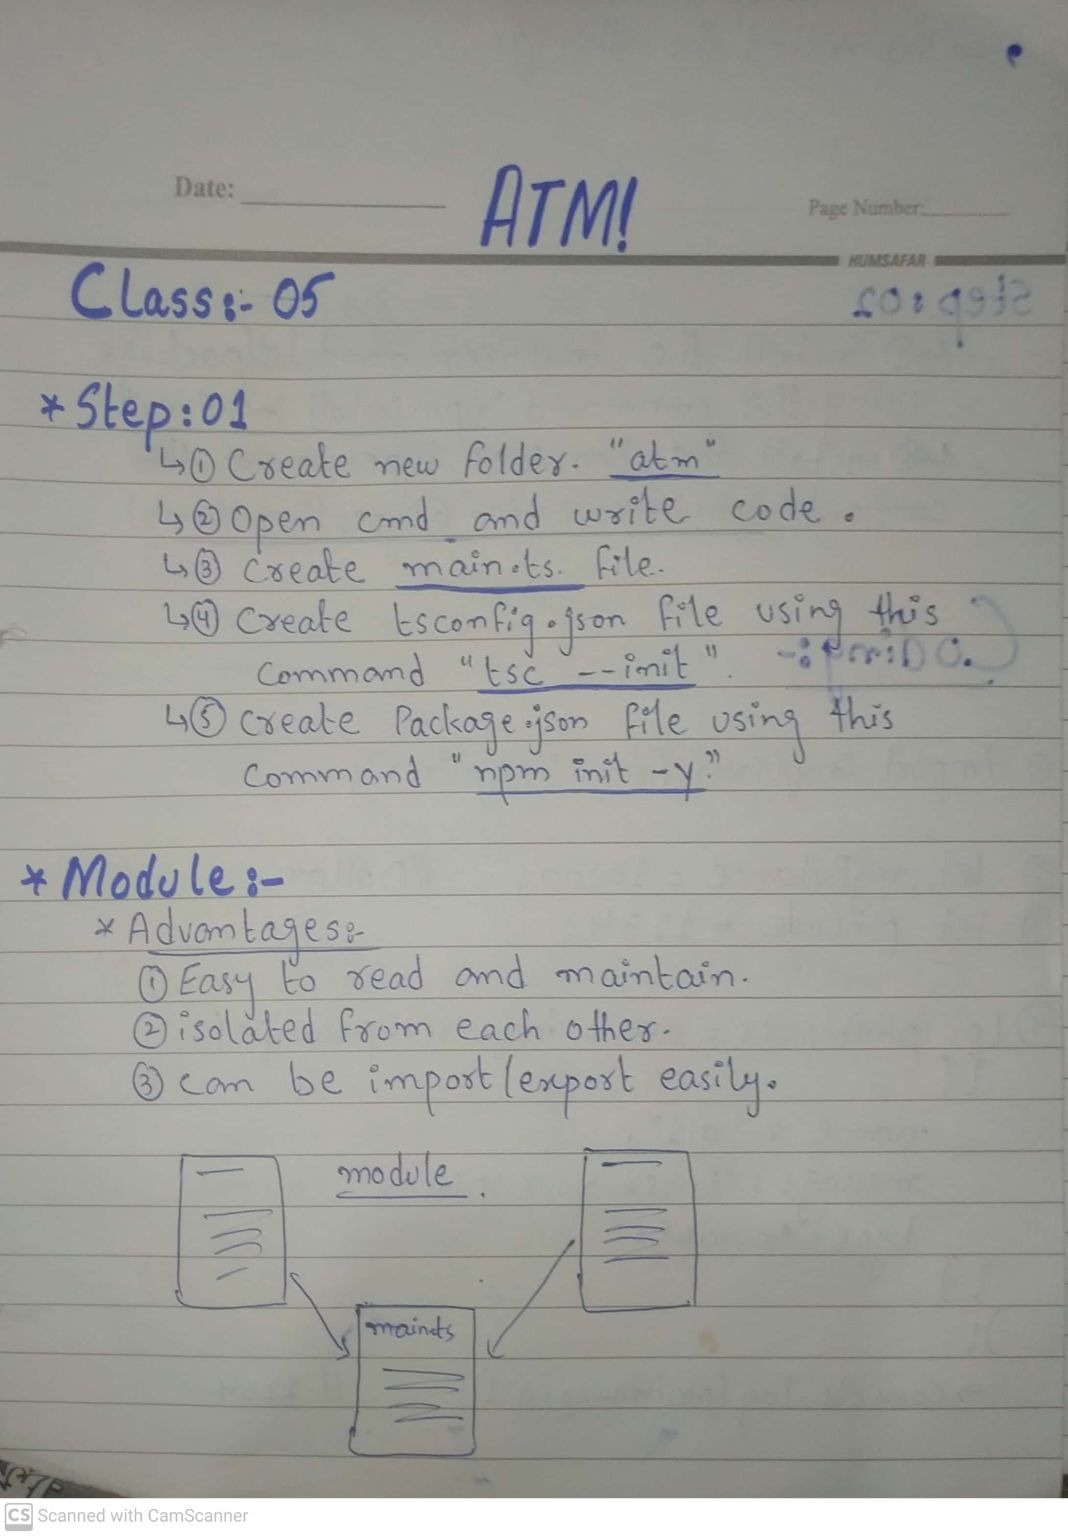 Date:
ATM!
Page Number:
HUMSAFAR
Class:- 05
Step:02
* Step:01
↳① Create new folder. "atm"
↳② Open cmd and write code.
↳③ Create main.ts. file.
↳④ Create tsconfig.json file using this
Command "tsc --init".
↳⑤ Create Package.json file using this
Command "npm init -y."
* Module:-
* Advantages:-
① Easy to read and maintain.
② isolated from each other.
③ can be import/export easily.
module.
main.ts
CS Scanned with CamScanner